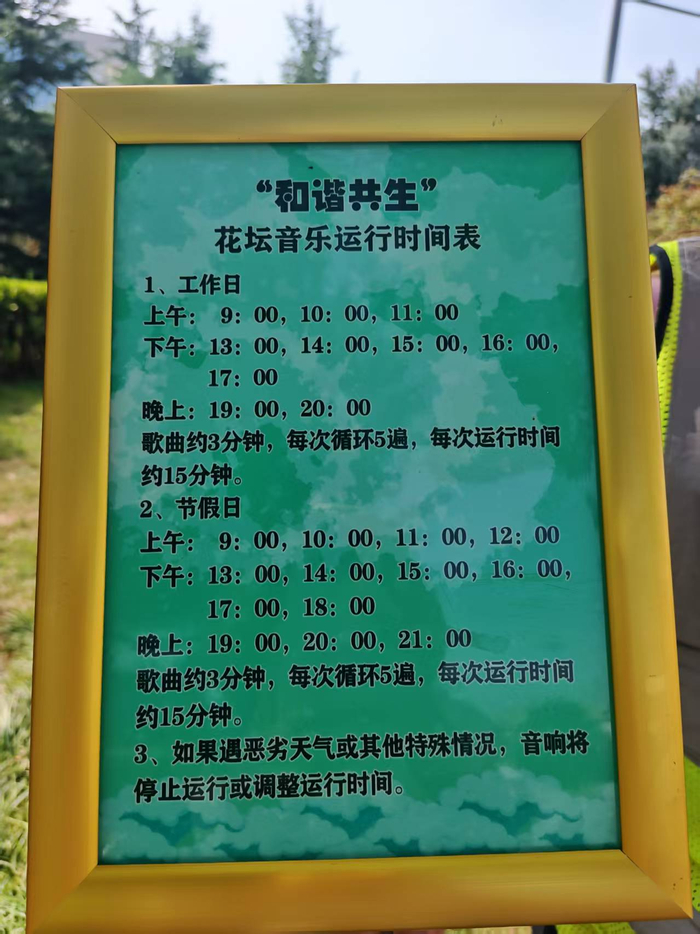 “和谐共生”
花坛音乐运行时间表
1、工作日
上午： 9：00，10：00，11：00
下午：13：00，14：00，15：00，16：00，
17：00
晚上：19：00，20：00
歌曲约3分钟，每次循环5遍，每次运行时间
约15分钟。
2、节假日
上午： 9：00，10：00，11：00，12：00
下午：13：00，14：00，15：00，16：00，
17：00，18：00
晚上：19：00，20：00，21：00
歌曲约3分钟，每次循环5遍，每次运行时间
约15分钟。
3、如果遇恶劣天气或其他特殊情况，音响将
停止运行或调整运行时间。